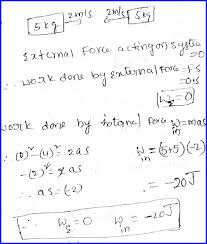 5 kg 2m/s 2m/s 5kg
External Force acting on system = 0
∴ work done by external force = FS
= 0×s
W_s = 0
work done by internal force W = mas
∴ (0)² - (u)² = 2as
-(2)² = 2as
∴ as = (-2)
W_in = (5+5)(-2)
∴ = -20J
∴ W_s = 0 W_in = -20J